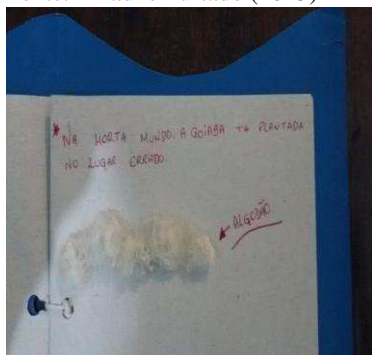 * NA HORTA MUNDO A GOIABA TA PLANTADA
NO LUGAR ERRADO.
ALGODÃO